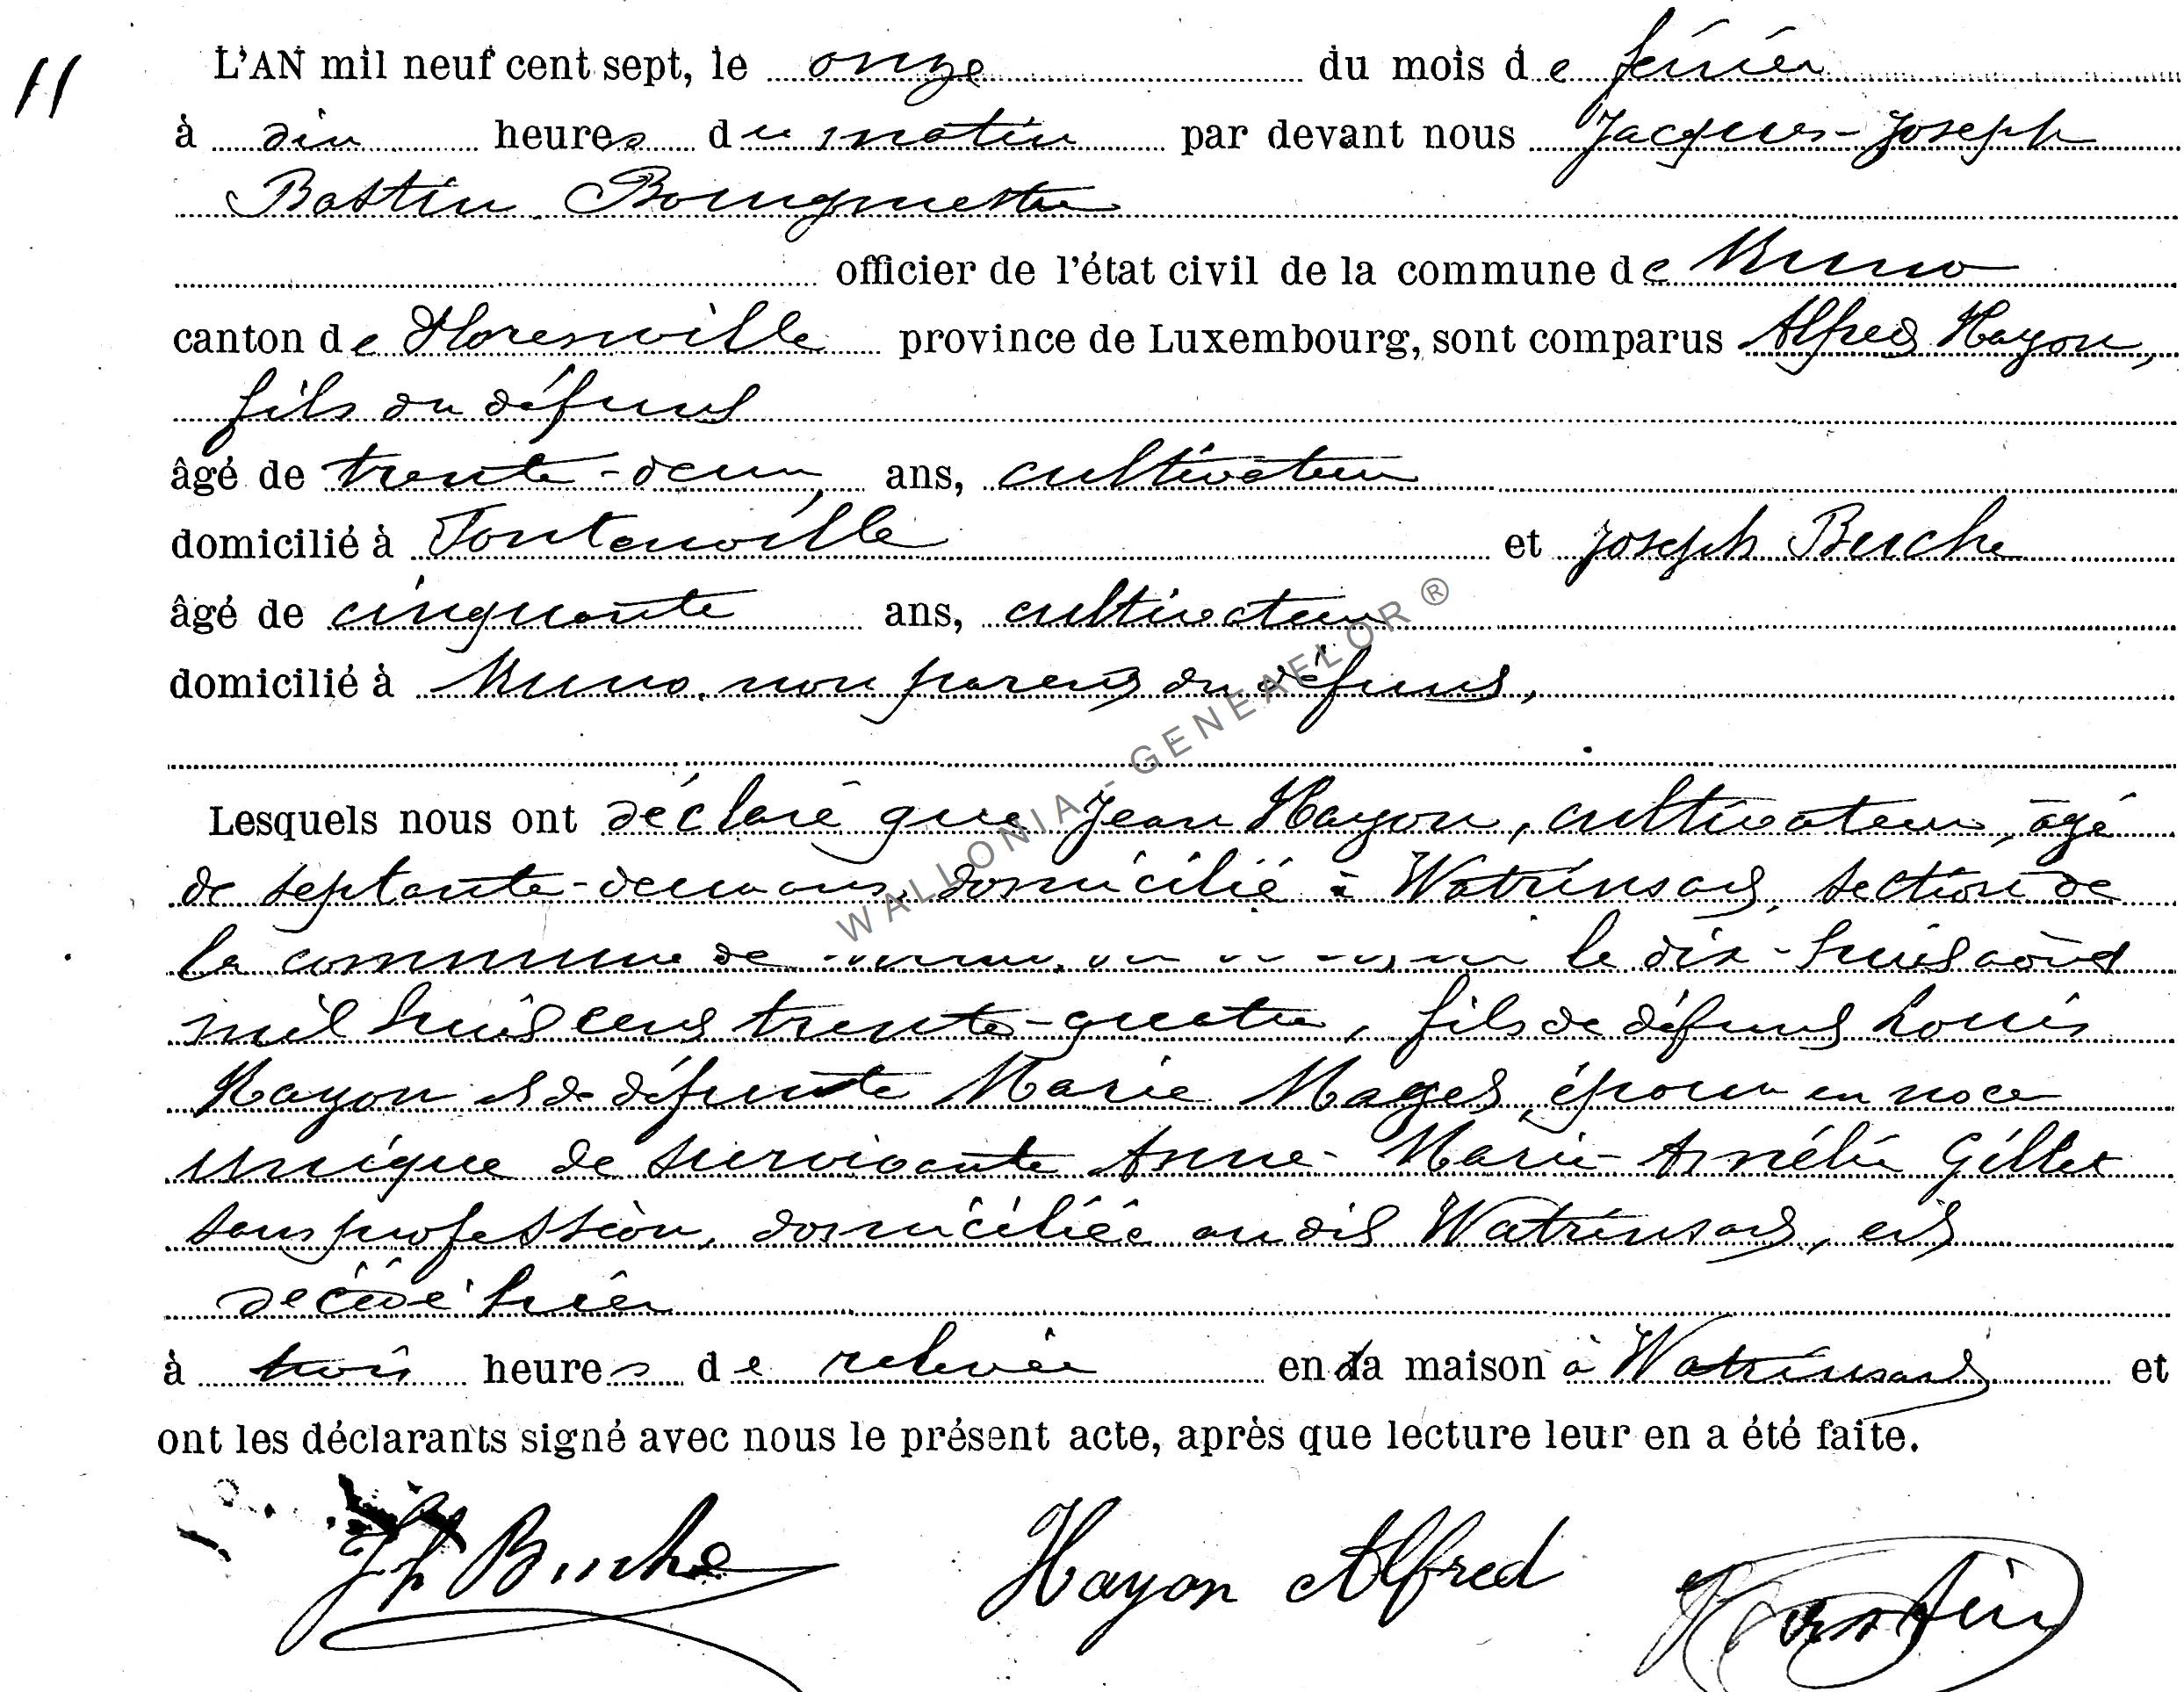 11
L'AN mil neuf cent sept, le onze du mois de février
à dix heures du matin par devant nous Jacques-Joseph
Bastin Bourgmestre
officier de l'état civil de la commune de Muno
canton de Florenville province de Luxembourg, sont comparus Alfred Hayon,
fils du défunt
âgé de trente-deux ans, cultivateur
domicilié à Fontenoille et Joseph Buche
âgé de cinquante ans, cultivateur
domicilié à Muno, non parent du défunt,
Lesquels nous ont déclaré que Jean Hayon, cultivateur, âgé
de septante-deux ans, domicilié à Watrinsart, section de
la commune de le dix-huit août
mil huit cent trente-quatre, fils de défunt Louis
Hayon et de défunte Marie Maget, époux en noce
unique de survivante Anne-Marie-Amélie Gillet
sans profession, domiciliée au dit Watrinsart, est
décédé hier
à trois heures de relevée en la maison à Watrinsart et
ont les déclarants signé avec nous le présent acte, après que lecture leur en a été faite.
Jh Buche Hayon Alfred Bastin
WALLONIA - GENEAFLOR ®